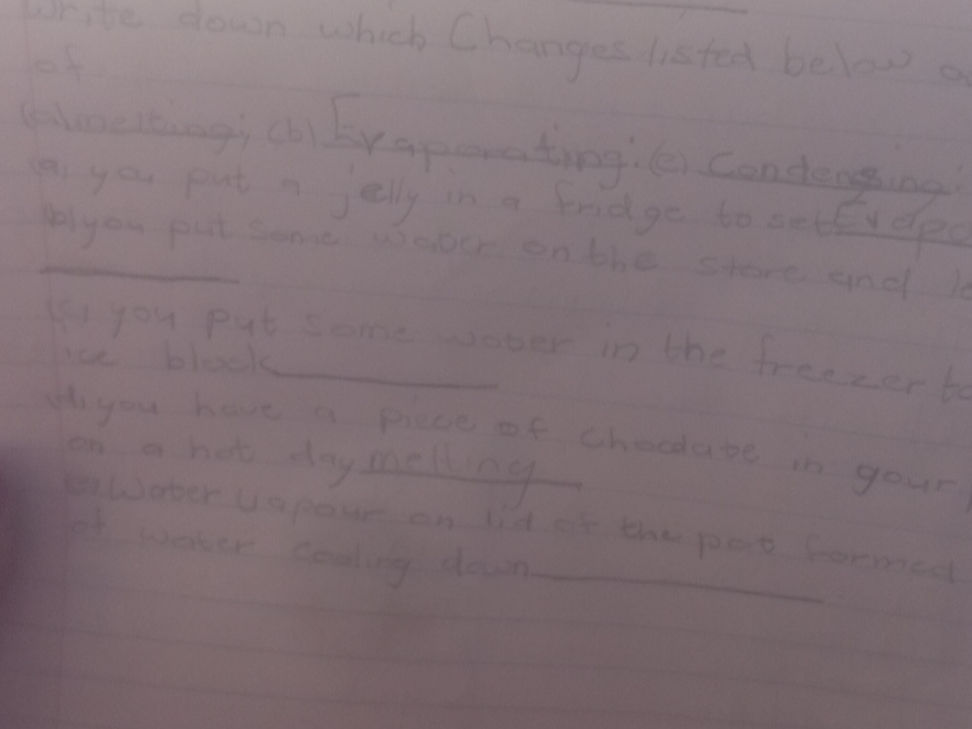 Write down which Changes listed below
of
(a) melting; (b) Evaporating: (c) Condensing:
(a, you put a jelly in a fridge to set Evapo
(b) you put some water on the stove and le
(c, you put some water in the freezer to
ice block
d, you have a piece of Chocolate in your
on a hot day melting
e, Water vapour on lid of the pot formed
of water cooling down